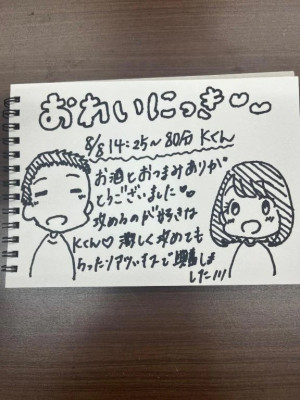 おれいにっき♡♡
8/8 14:25~80分 Kくん
お酒とおつまみありが
とうございました♡
攻めるのが好きな
Kくん♡ 激しく攻めても
らったりアツいキスで興奮しま
した!!!